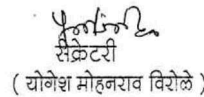 सेक्रेटरी
( योगेश मोहनराव विरोले )